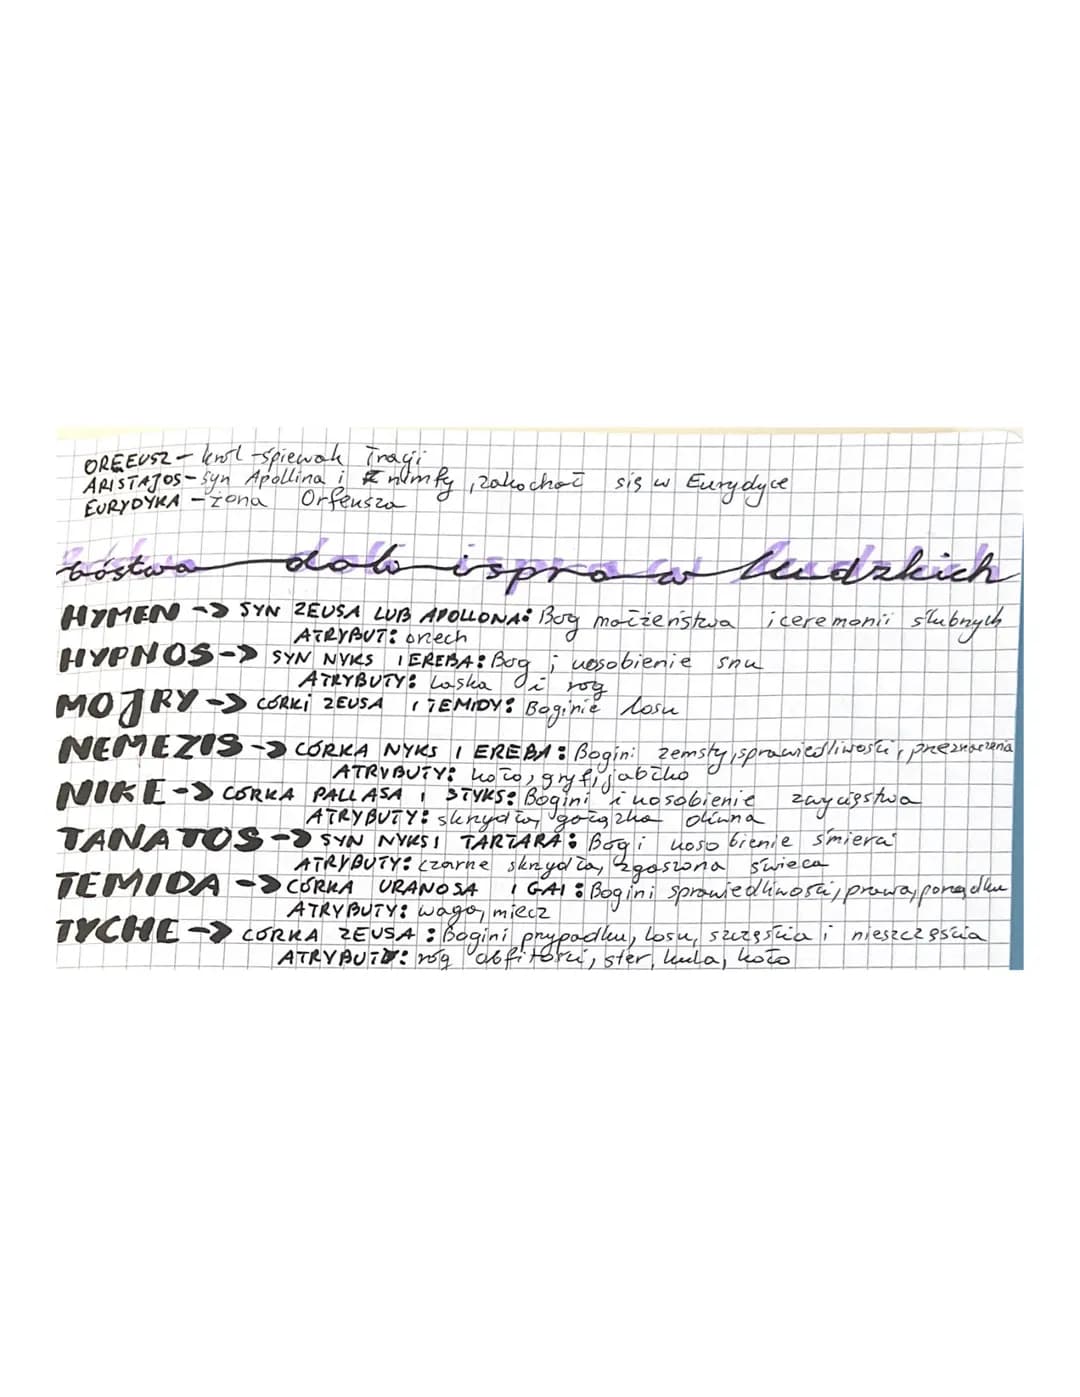 ORFEUSZ - król -śpiewak Tragi
ARISTAJOS - syn Apollina i nimfy, zakochał się w Eurydyce
EURYDYKA - żona Orfeusza
bóstwa doli i spraw ludzkich
HYMEN -> SYN ZEUSA LUB APOLLONA: Bóg małżeństwa i ceremonii ślubnych
ATRYBUT: orzech
HYPNOS -> SYN NYKS I EREBA: Bóg i uosobienie snu
ATRYBUTY: laska i róg
MOJRY -> CÓRKI ZEUSA I TEMIDY: Boginie losu
NEMEZIS -> CÓRKA NYKS I EREBA: Bogini zemsty, sprawiedliwości, przeznaczenia
ATRYBUTY: koło, gryf, jabłko
NIKE -> CÓRKA PALLASA I STYKS: Bogini i uosobienie zwycięstwa
ATRYBUTY: skrzydła, gałązka oliwna
TANATOS -> SYN NYKS I TARTARA: Bóg i uosobienie śmierci
ATRYBUTY: czarne skrzydła, zgaszona świeca
TEMIDA -> CÓRKA URANOSA I GAI: Bogini sprawiedliwości, prawa, porządku
ATRYBUTY: waga, miecz
TYCHE -> CÓRKA ZEUSA: Bogini przypadku, losu, szczęścia i nieszczęścia
ATRYBUTY: róg obfitości, ster, kula, koło